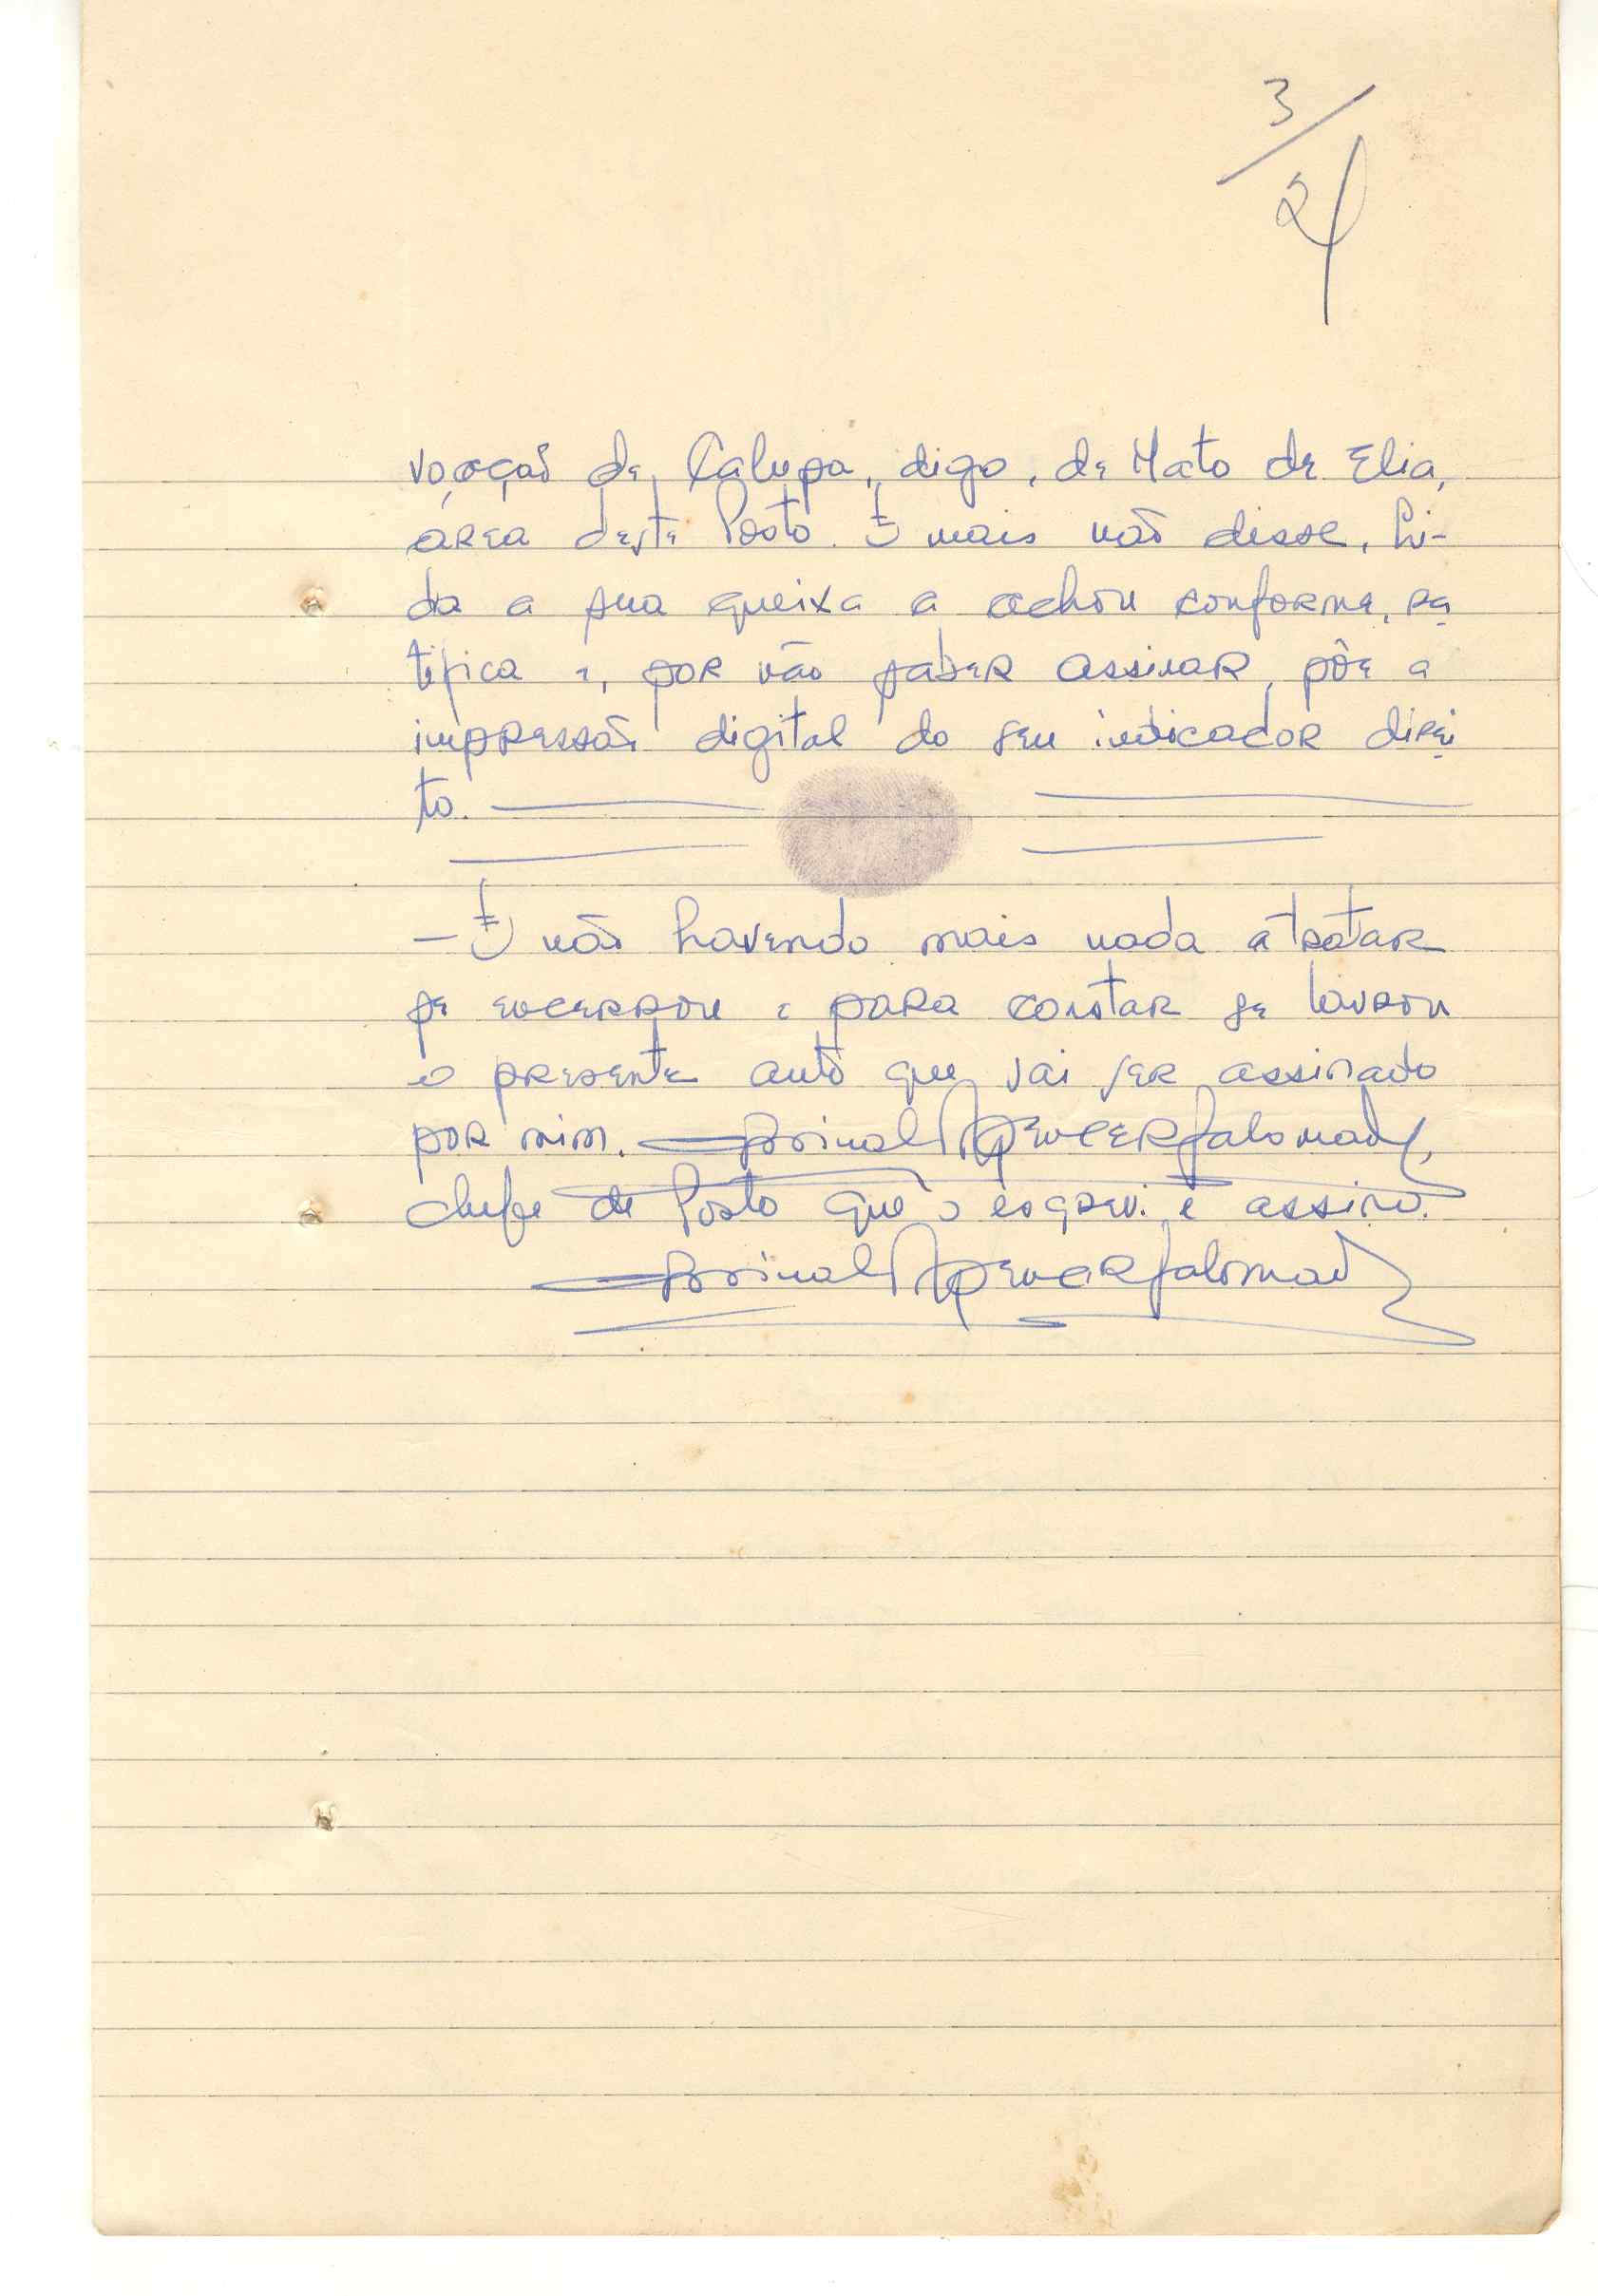 3/2
voação de Calupa, digo, de Mato de Elia,
área deste Posto. E mais não disse. Li-
da a sua queixa a achou conforme, ra
tifica e, por não saber assinar, põe a
impressão digital do seu indicador direi
to.
- E não havendo mais nada a tratar
se encerrou e para constar se lavrou
o presente auto que vai ser assinado
por mim.
chefe de Posto que o escrevi e assino.